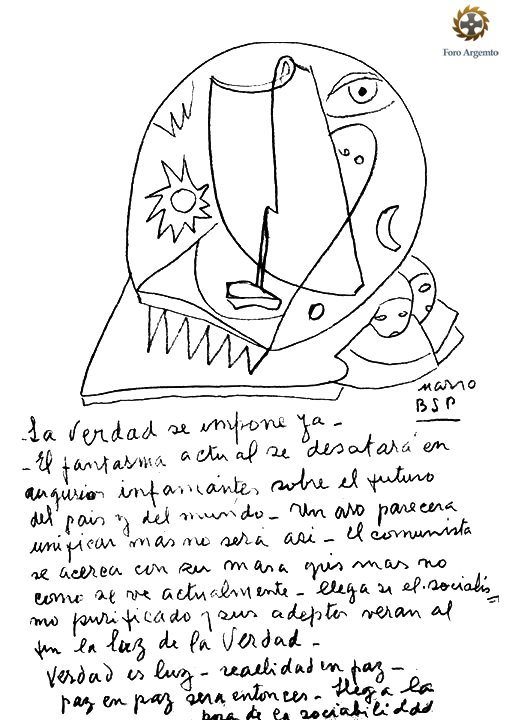 Foro Argemto
BSP
-La Verdad se impone ya-
-El fantasma actual se desatará en
augurios infamantes sobre el futuro
del pais y del mundo- Un aso parecera
unificar mas no será asi- El comunista
se acerca con su masa gris mas no
como se ve actualmente- llega si el socialis=
mo purificado y sus adeptos veran al
fin la luz de la Verdad-
Verdad es luz- realidad en paz-
paz en paz sera entonces- llega la
hora de la sociabilidad